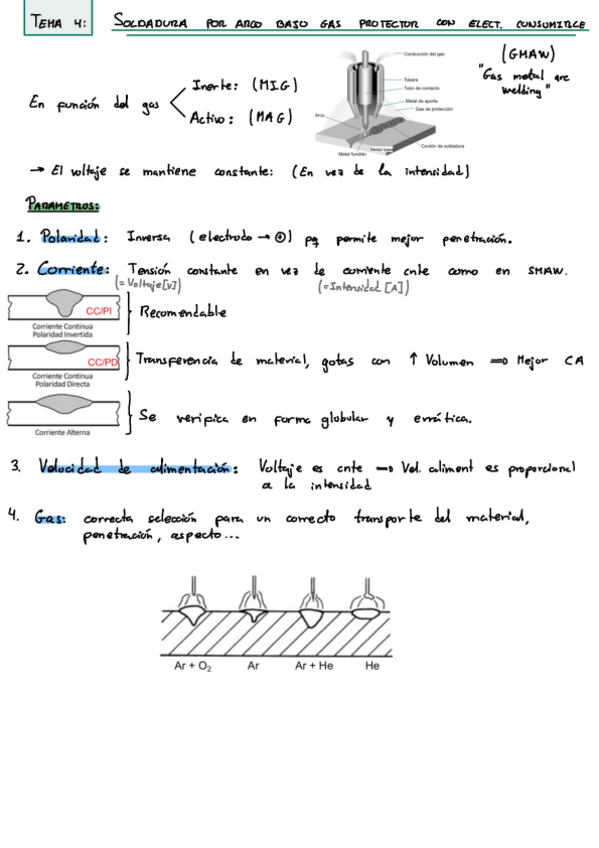 TEMA 4: SOLDADURA POR ARCO BAJO GAS PROTECTOR CON ELECT. CONSUMIBLE
(GMAW)
"Gas metal arc
welding"
Conducción del gas
Tobera
Tubo de contacto
Metal de aporte
Gas de protección
Arco
Cordón de soldadura
Metal base
Metal fundido
En función del gas
Inerte: (MIG)
Activo: (MAG)
→ El voltaje se mantiene constante: (En vez de la intensidad)
PARAMETROS:
1. Polaridad: Inversa (electrodo → ⊕) pq permite mejor penetración.
2. Corriente: Tensión constante en vez de corriente cnte como en SMAW.
(= Voltaje [V]) (= Intensidad [A])
CC/PI
Corriente Continua
Polaridad Invertida
Recomendable
CC/PD
Corriente Continua
Polaridad Directa
Transferencia de material, gotas con ↑ Volumen ⇒ Mejor CA
Corriente Alterna
Se verifica en forma globular y errática.
3. Velocidad de alimentación: Voltaje es cnte → Vel. aliment es proporcional
a la intensidad
4. Gas: correcta selección para un correcto transporte del material,
penetración, aspecto...
Ar + O₂ Ar Ar + He He